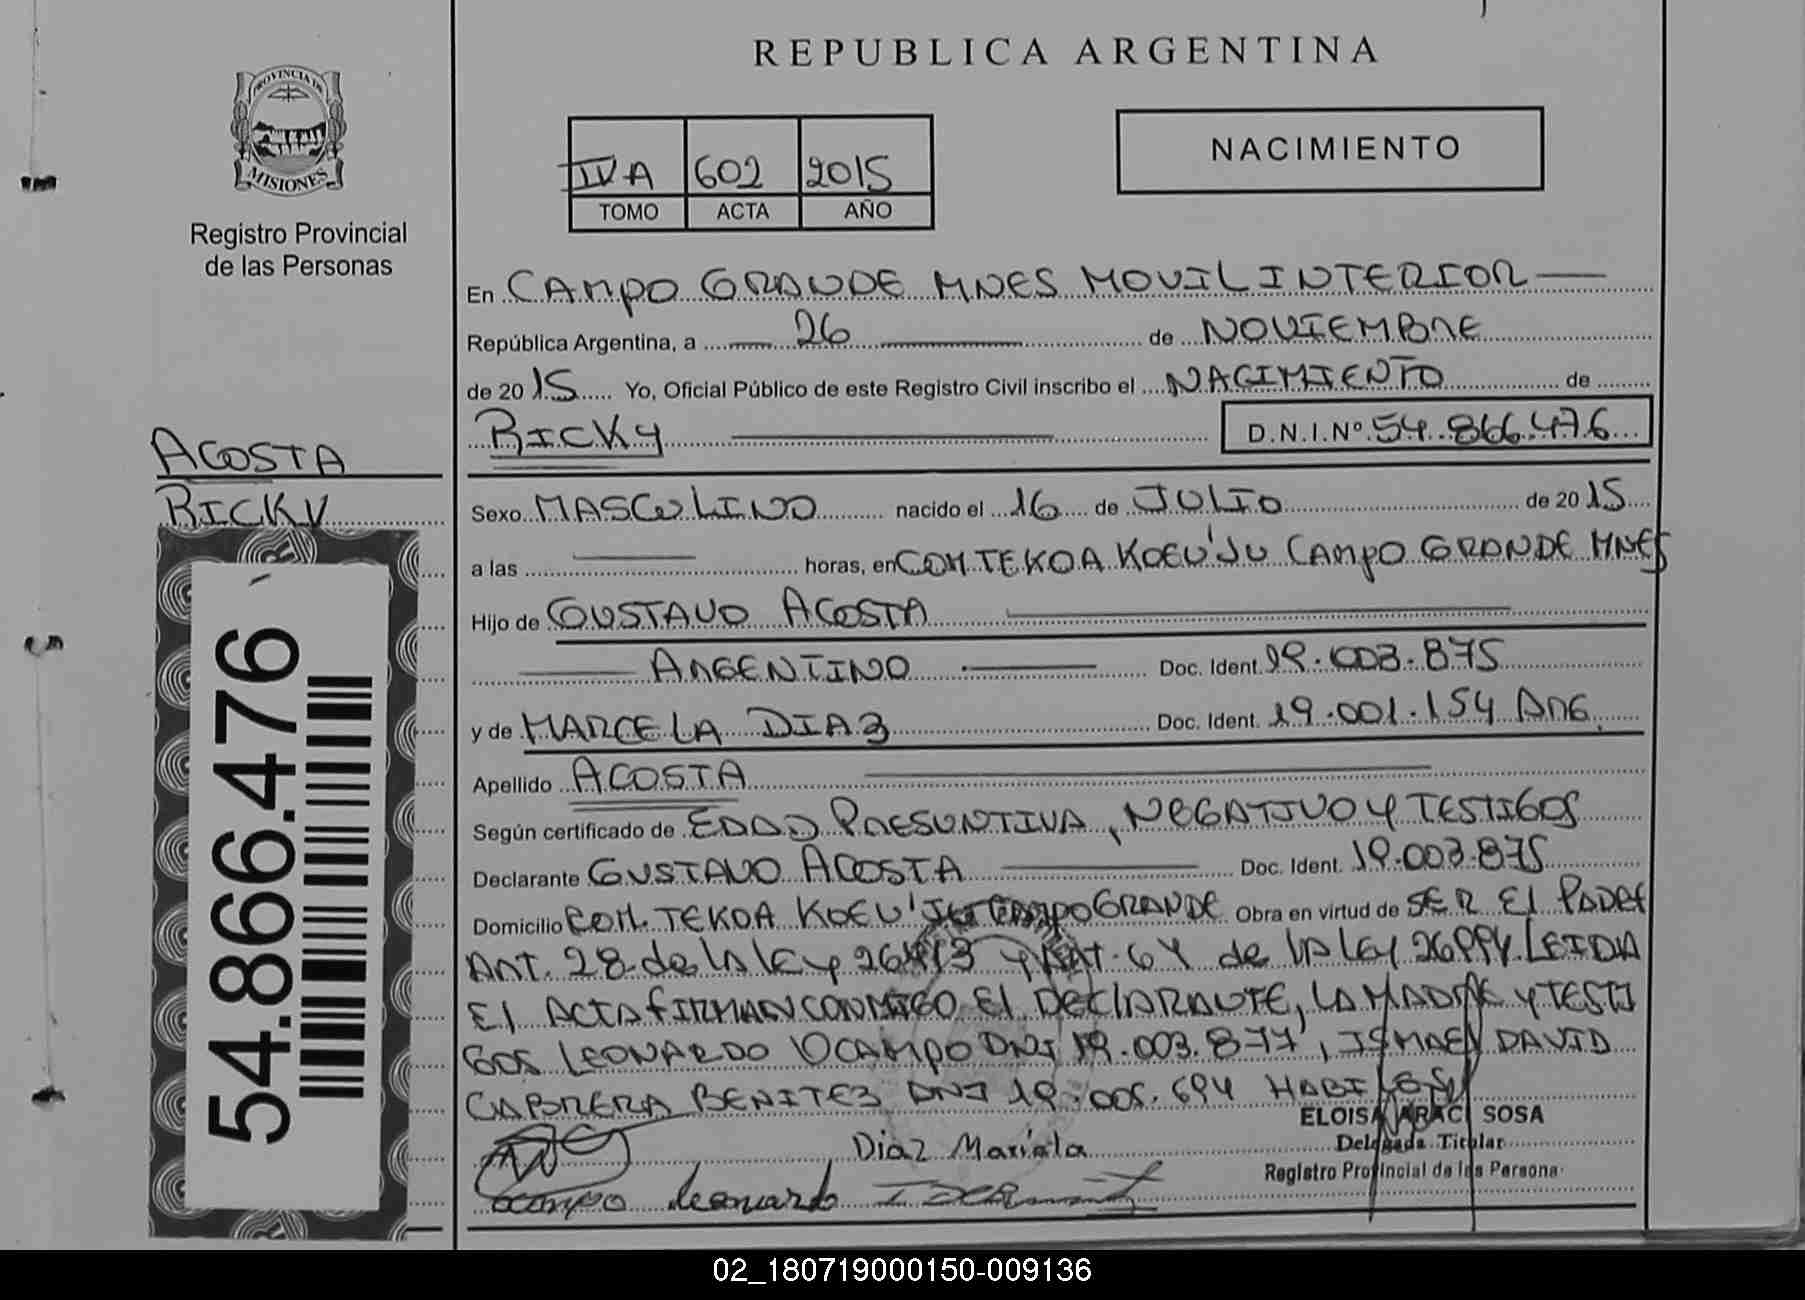 REPUBLICA ARGENTINA
PROVINCIA DE
MISIONES
Registro Provincial
de las Personas
IV A 602 2015
TOMO ACTA AÑO
NACIMIENTO
En CAMPO GRANDE MNES MOVIL INTERIOR
República Argentina, a 26 de NOVIEMBRE
de 2015 Yo, Oficial Público de este Registro Civil inscribo el NACIMIENTO de
RICKY D.N.I.Nº 54.866.476
ACOSTA
RICKY
54.866.476
Sexo MASCULINO nacido el 16 de JULIO de 2015
a las horas, en COM TEKOA KOEU'JU CAMPO GRANDE MNES
Hijo de GUSTAVO ACOSTA
ARGENTINO Doc. Ident. 19.003.875
y de MARCELA DIAZ Doc. Ident. 19.001.154 ARG
Apellido ACOSTA
Según certificado de EDAD PRESUNTIVA, NEGATIVO Y TESTIGOS
Declarante GUSTAVO ACOSTA Doc. Ident. 19.003.875
Domicilio COM. TEKOA KOEU'JU CAMPO GRANDE Obra en virtud de SER El PADRE
ART. 28 de la ley 26413 y ART. 64 de la ley 26994. LEIDA
El ACTA FIRMAN CONMIGO El DEClARANTE, LA MADRE y TESTI
GOS LEONARDO OCAMPO DNI 19.003.877, ISMAEL DAVID
CABRERA BENITEZ DNI 19.005.694 HABILES
ELOISA ARACI SOSA
Diaz Mariela
Delegada Titular
Registro Provincial de las Persona
ocampo leonardo
02_180719000150-009136